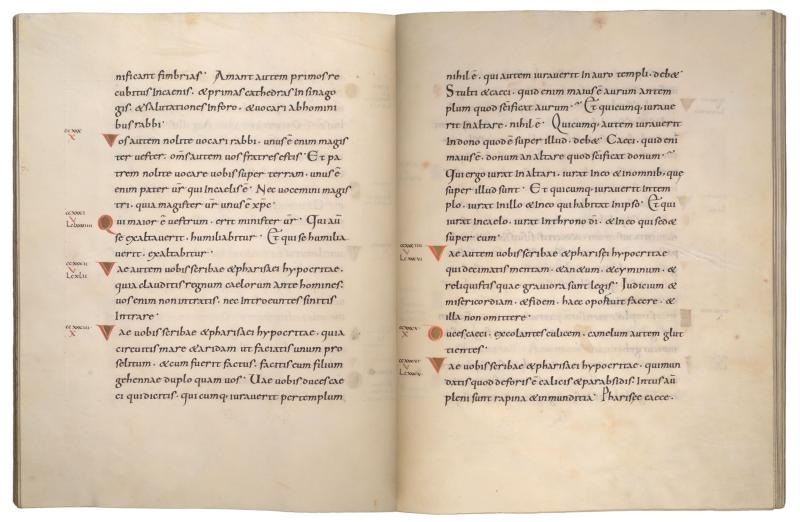 nificant fimbrias · Amant autem primos re
cubitus in caenis · & primas cathedras in sinago
gis · & salutationes in foro · & uocari ab homini
bus rabbi ·
Vos autem nolite uocari rabbi · unus ē enim magis
ter uester · om̄s autem uos fratres estis · Et pa
trem nolite uocare uobis super terram · unus ē
enim pater ur̄ qui in caelis ē · Nec uocemini magis
tri · quia magister ur̄ unus ē xp̄c ·
Qui maior ē uestrum · erit minister ur̄ · Qui aū
se exaltauerit · humiliabitur · Et qui se humilia
uerit · exaltabitur ·
Vae autem uobis scribae & pharisaei hypocritae ·
quia clauditis regnum caelorum ante homines ·
uos enim non intratis · nec introeuntes sinitis
intrare ·
Vae uobis scribae & pharisaei hypocritae · quia
circuitis mare & aridam ut faciatis unum pro
selitum · & cum fuerit factus · facitis eum filium
gehennae duplo quam uos · Uae uobis duces cae
ci qui dicitis · quicumq· iurauerit per templum
nihil ē · qui autem iurauerit in auro templi · deb&
Stulti & caeci · quid enim maius ē aurum an tem
plum quod sc̄ificat aurum · Et quicumq· iuraue
rit in altare · nihil ē · Quicumq· autem iurauerit
in dono quod ē super illud · deb& · Caeci · quid eni
maius ē · donum an altare quod sc̄ificat donum ·
Qui ergo iurat in altari · iurat in eo & in omnib· que
super illud sunt · Et quicumq· iurauerit in tem
plo · iurat in illo & in eo qui habitat in ipso · Et qui
iurat in caelo · iurat in throno dī · & in eo qui sed&
super eum ·
Vae autem uobis scribae & pharisaei hypocritae
qui decimatis mentam · & an&um · & cyminum · &
reliquistis quae grauiora sunt legis · Iudicium &
misericordiam · & fidem · haec oportuit facere · &
illa non omittere ·
Duces caeci · excolantes culicem · camelum autem glut
tientes ·
Vae uobis scribae & pharisaei hypocritae · qui mun
datis quod deforis ē calicis & parabsidis · Intus aū
pleni sunt rapina & inmunditia · Pharisee caece ·